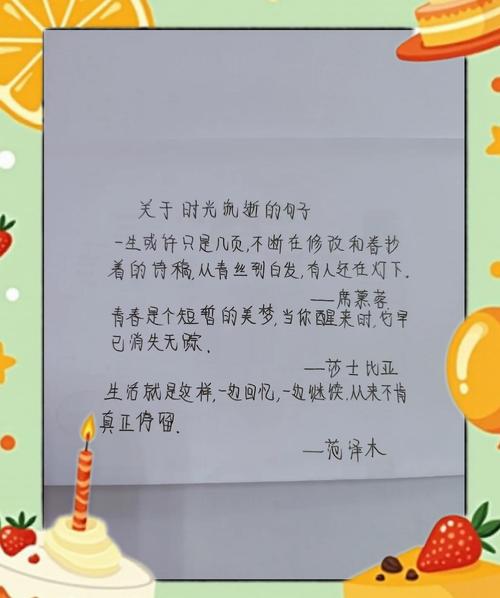 关于时光流逝的句子
一生或许只是几页,不断在修改和眷抄
着的诗稿,从青丝到白发,有人还在灯下.
——席慕蓉
青春是个短暂的美梦,当你醒来时,它早
已消失无踪.
——莎士比亚
生活就是这样,一边回忆,一边继续,从来不肯
真正停留.
——范泽木